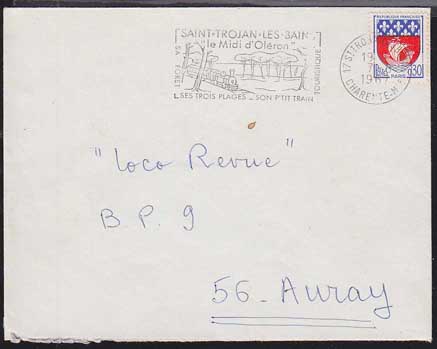 SAINT-TROJAN-LES-BAINS
"le Midi d'Oléron"
SA FORET
TOURISTIQUE
SES TROIS PLAGES _ SON P'TIT TRAIN
REPUBLIQUE FRANÇAISE
0,30
PARIS
17 ST TROJAN
CHARENTE-M
"Loco Revue"
B.P. 9
56_ Auray